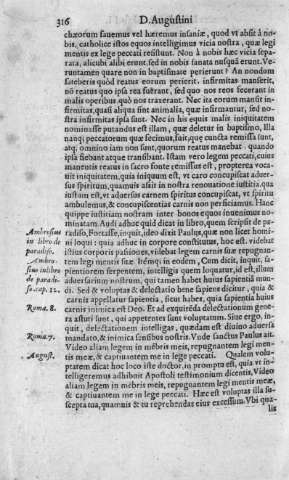 316 D. Augustini
chæorum fauemus vel hæremus insaniæ, quod vt absit à no-
bis, catholice istos equos intelligimus vicia nostra, quæ legi
mentis ex lege peccati resistunt. Non à nobis hæc vicia sepa-
rata, alicubi alibi erunt sed in nobis sanata nusquā erunt. Ve-
runtamen quare non in baptismate perierunt? An nondum
fateberis quòd reatus eorum perierit, infirmitas manserit,
nō reatus quo ipsa rea fuerant, sed quo nos reos fecerant in
malis operibus quò nos traxerant. Nec ita eorum mansit in-
firmitas, quasi aliqua sint animalia, quæ infirmantur, sed no-
stra infirmitas ipsa sunt. Nec in his equis malis iniquitatem
nominasse putandus est illam, quæ deletur in baptismo, illa
nanqȝ peccatorum quæ fecimus, fuit, quæ cuncta remissa sunt,
atqȝ omnino iam non sunt, quorum reatus manebat quando
ipsa fiebant atque transibant. Istam vero legem peccati, cuius
manentis reatus in sacro fonte remissus est, propterea voca-
uit iniquitatem, quia iniquum est, vt caro concupiscat aduer-
sus spiritum, quamuis adsit in nostra renouatione iustitia, qua
iustum est, vt aduersus carnem spiritus concupiscat, vt spiritu
ambulemus, & concupiscentias carnis non perficiamus. Hanc
quippe iustitiam nostram inter bonos equos inuenimus no-
minatam. Audi adhuc quid dicat in libro, quem scripsit de pa-
radiso, Forsasse, inquit, ideo dixit Paulus, quæ non licet homi
ni loqui: quia adhuc in corpore constitutus, hoc est, videbat
istius corporis passiones, videbat legem carnis suæ repugnan-
tem legi mentis suæ. Itemqȝ in eodem, Cem dicit, inquit, sa-
pientiorem serpentem, intelligis quem loquatur, id est, illum
aduersarium nostrum, qui tamen habet huius sapientiā mun-
di. Sed & voluptas & delectatio bene sapiens dicitur, quia &
carnis appellatur sapientia, sicut habes, quia sapientia huius
carnis inimica est Deo. Et ad exquirēda delectationum gene-
ra astuti sunt, qui appetentes sunt voluptatum. Siue ergo, in-
quit, delectationem intelligas, quædam est diuino aduersa
mandato, & inimica sensibus nostris. Vnde sanctus Paulus ait.
Video aliam legem in mēbris meis, repugnantem legi men-
tis meæ, & captiuantem me in lege peccati. Qualem volu-
ptatem dicat hoc loco iste doctor, in promptu est, quia vt in-
telligeremus adhibuit Apostoli testimonium dicentis, Video
aliam legem in mēbris meis, repugnantem legi mentis meæ,
& captiuantem me in lege peccati. Hæc est voluptas illa su-
scepta tua, quamuis & tu reprehendas eius excessum. Vbi qua-
lis
Ambrosius
in libro de
paradiso.
Ambro-
sius in libro
de paradi-
so. cap. 12.
Roma. 8.
Roma. 7.
August.